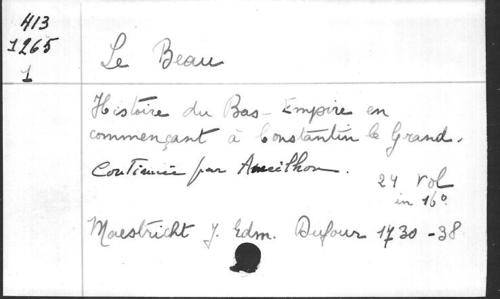 413
1265
1
Le Beau
Histoire du Bas-Empire en
commençant à Constantin le Grand.
Continuée par Ameilhon.
24 vol
in 16°
Maestricht J. Edm. Dufour 1730-38